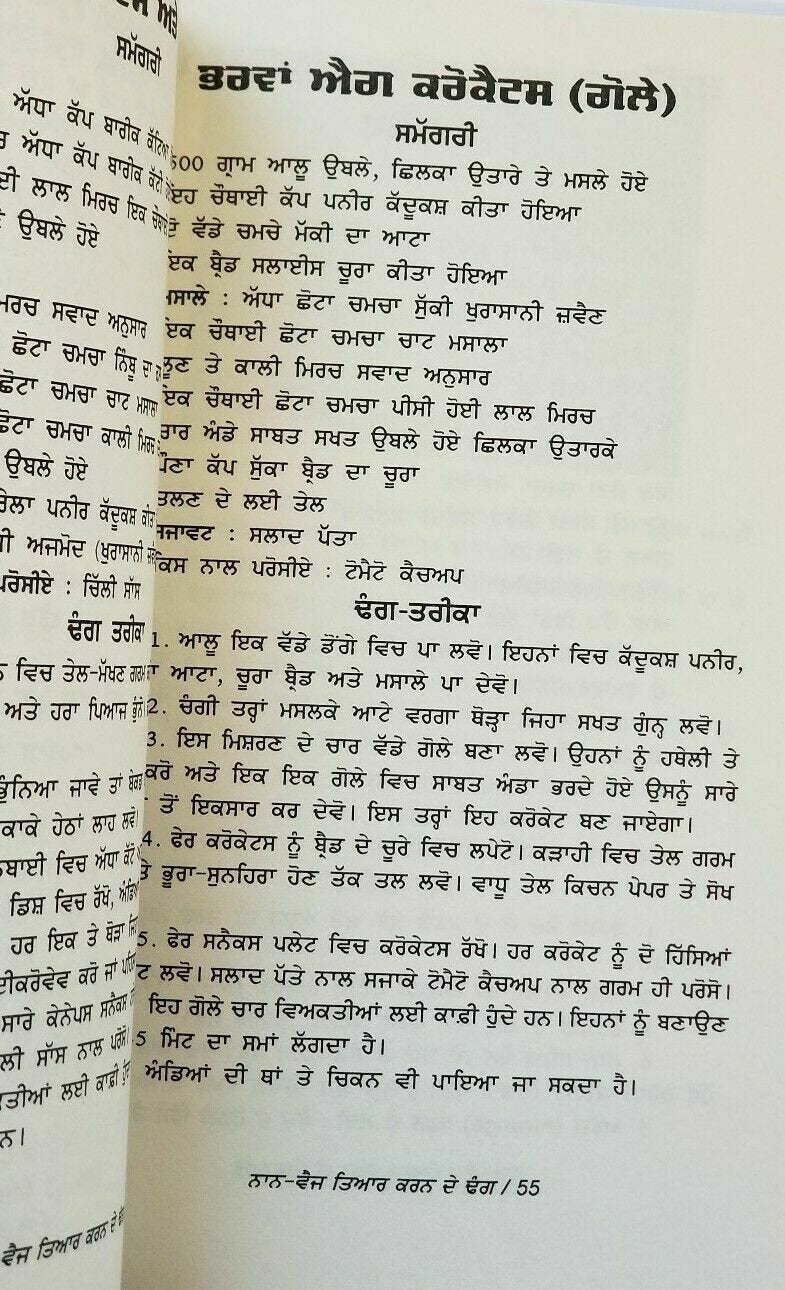 ਸਮੱਗਰੀ
ਅੱਧਾ ਕੱਪ ਬਾਰੀਕ ਕੱਟਿਆ
ਅੱਧਾ ਕੱਪ ਬਾਰੀਕ ਕੱਟੀ
ਲਾਲ ਮਿਰਚ ਇਕ
ਉਬਲੇ ਹੋਏ
ਸਵਾਦ ਅਨੁਸਾਰ
ਛੋਟਾ ਚਮਚਾ ਨਿੰਬੂ ਦਾ
ਛੋਟਾ ਚਮਚਾ ਚਾਟ ਮਸਾਲਾ
ਛੋਟਾ ਚਮਚਾ ਕਾਲੀ ਮਿਰਚ
ਉਬਲੇ ਹੋਏ
ਪਨੀਰ ਕੱਦੂਕਸ਼ ਕੀਤਾ
ਅਜਮੋਦ (ਖੁਰਾਸਾਨੀ
: ਚਿੱਲੀ ਸੱਸ
ਢੰਗ ਤਰੀਕਾ
ਵਿਚ ਤੇਲ-ਮੱਖਣ ਗਰਮ
ਅਤੇ ਹਰਾ ਪਿਆਜ ਭੁੰਨੋ
ਜਾਵੇ ਤਾਂ
ਹੇਠਾਂ ਲਾਹ ਲਵੋ।
ਵਿਚ ਅੱਧਾ ਕੱਟੋ
ਡਿਸ਼ ਵਿਚ ਰੱਖੋ,
ਹਰ ਇਕ ਤੇ ਥੋੜਾ
ਕਰੋ ਜਾਂ
ਸਾਰੇ ਕੇਨੇਪਸ ਸਨੈਕਸ
ਸੱਸ ਨਾਲ ਪਰੋਸੋ।
ਲਈ ਕਾਫ਼ੀ
ਵੈਜ ਤਿਆਰ ਕਰਨ ਦੇ
ਭਰਵਾਂ ਐਗ ਕਰੋਕੈਟਸ (ਗੋਲੇ)
ਸਮੱਗਰੀ
500 ਗ੍ਰਾਮ ਆਲੂ ਉਬਲੇ, ਛਿਲਕਾ ਉਤਾਰੇ ਤੇ ਮਸਲੇ ਹੋਏ
ਚੌਥਾਈ ਕੱਪ ਪਨੀਰ ਕੱਦੂਕਸ਼ ਕੀਤਾ ਹੋਇਆ
ਵੱਡੇ ਚਮਚੇ ਮੱਕੀ ਦਾ ਆਟਾ
ਇਕ ਬ੍ਰੈਡ ਸਲਾਈਸ ਚੂਰਾ ਕੀਤਾ ਹੋਇਆ
ਮਸਾਲੇ : ਅੱਧਾ ਛੋਟਾ ਚਮਚਾ ਸੁੱਕੀ ਖੁਰਾਸਾਨੀ ਜ਼ਵੈਣ
ਇਕ ਚੌਥਾਈ ਛੋਟਾ ਚਮਚਾ ਚਾਟ ਮਸਾਲਾ
ਲੂਣ ਤੇ ਕਾਲੀ ਮਿਰਚ ਸਵਾਦ ਅਨੁਸਾਰ
ਇਕ ਚੌਥਾਈ ਛੋਟਾ ਚਮਚਾ ਪੀਸੀ ਹੋਈ ਲਾਲ ਮਿਰਚ
ਚਾਰ ਅੰਡੇ ਸਾਬਤ ਸਖਤ ਉਬਲੇ ਹੋਏ ਛਿਲਕਾ ਉਤਾਰਕੇ
ਪੌਣਾ ਕੱਪ ਸੁੱਕਾ ਬ੍ਰੈਡ ਦਾ ਚੂਰਾ
ਤਲਣ ਦੇ ਲਈ ਤੇਲ
ਸਜਾਵਟ : ਸਲਾਦ ਪੱਤਾ
ਕਿਸ ਨਾਲ ਪਰੋਸੀਏ : ਟੋਮੈਟੋ ਕੈਚਅਪ
ਢੰਗ-ਤਰੀਕਾ
1. ਆਲੂ ਇਕ ਵੱਡੇ ਡੋਂਗੇ ਵਿਚ ਪਾ ਲਵੋ। ਇਹਨਾਂ ਵਿਚ ਕੱਦੂਕਸ਼ ਪਨੀਰ,
ਦਾ ਆਟਾ, ਚੂਰਾ ਬ੍ਰੈਡ ਅਤੇ ਮਸਾਲੇ ਪਾ ਦੇਵੋ।
2. ਚੰਗੀ ਤਰ੍ਹਾਂ ਮਸਲਕੇ ਆਟੇ ਵਰਗਾ ਥੋੜ੍ਹਾ ਜਿਹਾ ਸਖਤ ਗੁੰਨ੍ਹ ਲਵੋ।
3. ਇਸ ਮਿਸ਼ਰਣ ਦੇ ਚਾਰ ਵੱਡੇ ਗੋਲੇ ਬਣਾ ਲਵੋ। ਉਹਨਾਂ ਨੂੰ ਹਥੇਲੀ ਤੇ
ਕਰੋ ਅਤੇ ਇਕ ਇਕ ਗੋਲੇ ਵਿਚ ਸਾਬਤ ਅੰਡਾ ਭਰਦੇ ਹੋਏ ਉਸਨੂੰ ਸਾਰੇ
ਤੋਂ ਇਕਸਾਰ ਕਰ ਦੇਵੋ। ਇਸ ਤਰ੍ਹਾਂ ਇਹ ਕਰੋਕੇਟ ਬਣ ਜਾਏਗਾ।
4. ਫੇਰ ਕਰੋਕੇਟਸ ਨੂੰ ਬ੍ਰੈਡ ਦੇ ਚੂਰੇ ਵਿਚ ਲਪੇਟੋ। ਕੜਾਹੀ ਵਿਚ ਤੇਲ ਗਰਮ
ਤੇ ਭੂਰਾ-ਸੁਨਹਿਰਾ ਹੋਣ ਤੱਕ ਤਲ ਲਵੋ। ਵਾਧੂ ਤੇਲ ਕਿਚਨ ਪੇਪਰ ਤੇ ਸੋਖ
5. ਫੇਰ ਸਨੈਕਸ ਪਲੇਟ ਵਿਚ ਕਰੋਕੇਟਸ ਰੱਖੋ। ਹਰ ਕਰੋਕੇਟ ਨੂੰ ਦੋ ਹਿੱਸਿਆਂ
ਲਵੋ। ਸਲਾਦ ਪੱਤੇ ਨਾਲ ਸਜਾਕੇ ਟੋਮੈਟੋ ਕੈਚਅਪ ਨਾਲ ਗਰਮ ਹੀ ਪਰੋਸੋ।
ਇਹ ਗੋਲੇ ਚਾਰ ਵਿਅਕਤੀਆਂ ਲਈ ਕਾਫ਼ੀ ਹੁੰਦੇ ਹਨ। ਇਹਨਾਂ ਨੂੰ ਬਣਾਉਣ
5 ਮਿੰਟ ਦਾ ਸਮਾਂ ਲੱਗਦਾ ਹੈ।
ਅੰਡਿਆਂ ਦੀ ਥਾਂ ਤੇ ਚਿਕਨ ਵੀ ਪਾਇਆ ਜਾ ਸਕਦਾ ਹੈ।
ਨਾਨ-ਵੈਜ ਤਿਆਰ ਕਰਨ ਦੇ ਢੰਗ / 55